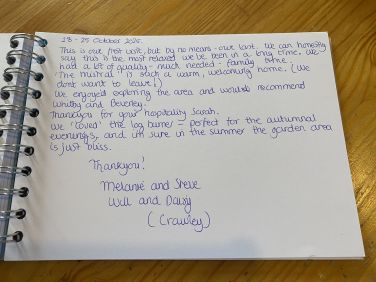 18 - 25 October 2025.
This is our first visit, but by no means our last. We can honestly
say this is the most relaxed we've been in a long time. We
had a lot of quality - much needed - family time.
'The mistral' is such a warm, welcoming home. (We
don't want to leave!)
We enjoyed exploring the area and would recommend
Whitby and Beverley
Thankyou for your hospitality Sarah.
We 'loved' the log burner - perfect for the autumnal
evenings, and i'm sure in the summer the garden area
is just bliss.
Thankyou!
Melanie and Steve
Will and Daisy
(Crawley)